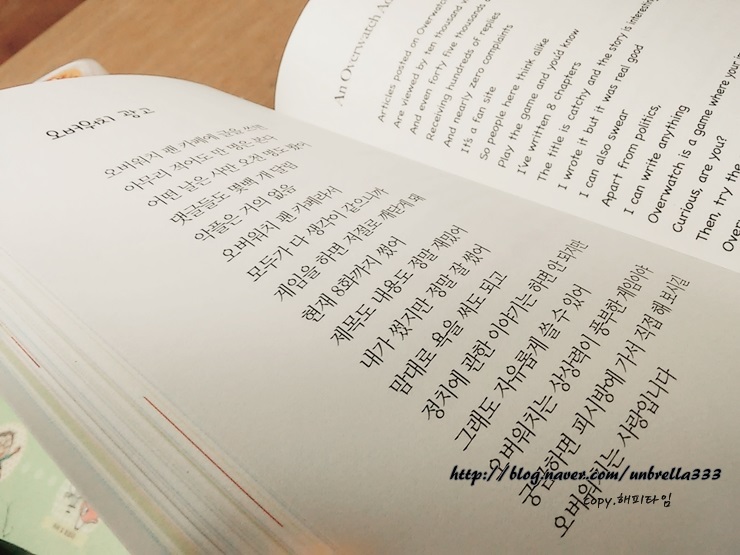 오버워치 광고
오버워치 팬 카페에 글을 쓰면
아무리 적어도 만 명은 본다
어떤 날은 사만 오천 명도 봤어
댓글들도 몇백 개 달림
악플은 거의 없음
오버워치 팬 카페라서
모두가 다 생각이 같으니까
게임을 하면 저절로 깨닫게 돼
현재 8화까지 썼어
제목도 내용도 정말 재밌어
내가 썼지만 정말 잘 썼어
맘대로 욕을 써도 되고
정치에 관한 이야기는 하면 안 되지만
그래도 자유롭게 쓸 수 있어
오버워치는 상상력이 풍부한 게임이야
궁금하면 피시방에 가서 직접 해 보시길
오버워치는 사랑입니다
An Overwatch Ad
Articles posted on Overwatch
Are viewed by ten thousand
And even forty five thousands
Receiving hundreds of replies
And nearly zero complaints
It's a fan site
So people here think alike
Play the game and you'd know
I've written 8 chapters
The title is catchy and the story is interesting
I wrote it but it was real good
I can also swear
Apart from politics,
I can write anything
Overwatch is a game where your
Curious, are you?
Then, try the
http://blog.naver.com/unbrella333
copy.해피타임